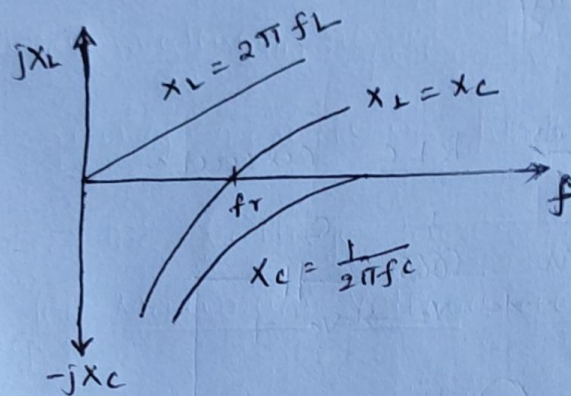 jXL
XL = 2πfL
XL = XC
fr
f
XC = 1/2πfC
-jXC